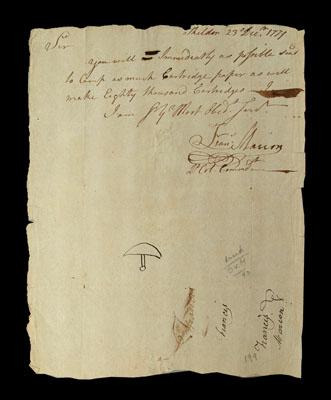 Sheldon 23d Decr. 1779
Sir
you will = Immediately as possible send
to Camp as much Cartridge paper as will
make Eighty thousand Cartridges
I am Sr. Yr. Most Obdt. Servt.
Fran: Marion
Lt Col Commdt
Francis
Francis
Marion